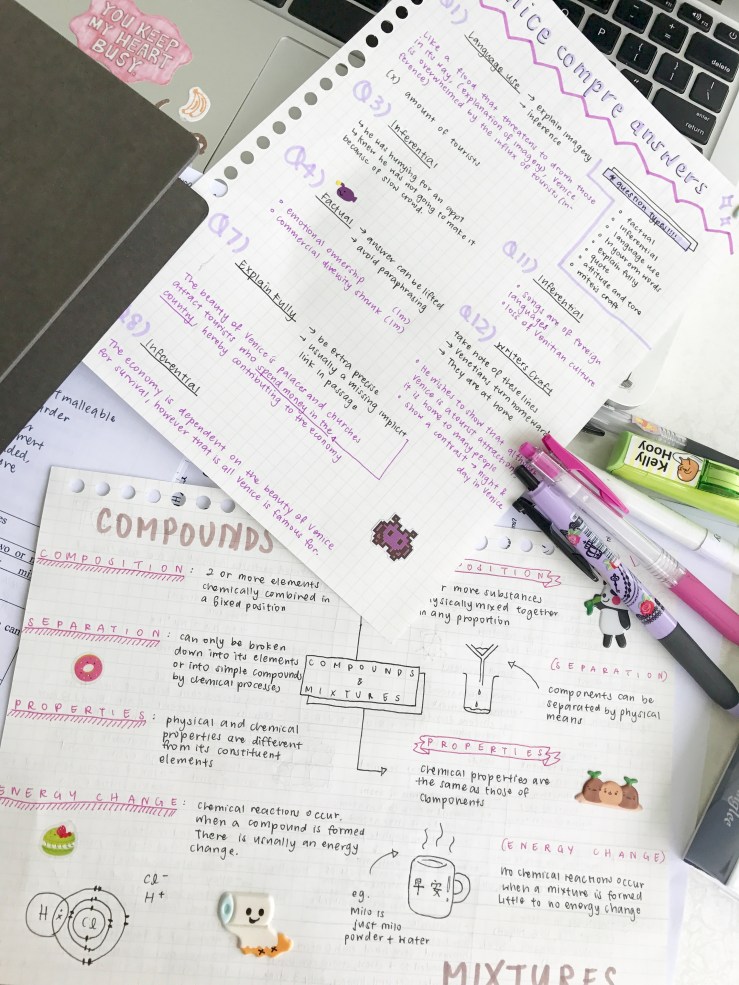 YOU KEEP
MY HEART
BUSY.
delete
enter
return
nice compre answers
Q1)
Language use → explain imagery
→ inference
Like a flood that threatens to drown those
in its way, (explanation of imagery) Venice
is overwhelmed by the influx of tourists (in-
ference)
(x) amount of tourists
Q3)
Inferential
↳ he was hurrying for an oppt
↳ knew he was not going to make it
because of slow crowd.
Q4)
Factual → answer can be lifted
→ avoid paraphrasing
• emotional ownership (1m)
• commercial diversity shrunk (1m)
Q7)
Explain Fully → be extra precise
→ usually a missing implicit
link in passage
The beauty of Venice's palaces and churches
attract tourists who spend money in the
country, hereby contributing to the economy
Q8)
Inferential
The economy is dependent on the beauty of Venice
for survival, however that is all Venice is famous for.
* question types!!!!!
• factual
• inferential
• language use
• in your own words
• explain fully
• quote
• attitude and tone
• writer's craft
Q11)
Inferential
• songs are of foreign
languages
• loss of Venitian culture
Q12)
Writers Craft
take note of these lines
→ Venetians turn homeward
→ They are at home
• He wishes to show that
Venice is a tourist attraction
it is home to many people
• show a contrast → night &
day in Venice
Kelly
Hooy
malleable
COMPOUNDS
COMPOSITION: 2 or more elements
chemically combined in
a fixed position
SEPARATION: can only be broken
down into its elements
or into simple compounds
by chemical processes
PROPERTIES: physical and chemical
properties are different
from its constituent
elements
ENERGY CHANGE: chemical reactions occur
when a compound is formed
There is usually an energy
change.
Cl⁻
H⁺
H
Cl
COMPOUNDS
&
MIXTURES
OSITION
r more substances
ysically mixed together
in any proportion
(SEPARATION)
components can be
separated by physical
means
PROPERTIES
Chemical properties are
the same as those of
components
(ENERGY CHANGE)
no chemical reactions occur
when a mixture is formed
Little to no energy change
早安!
eg.
Milo is
just milo
powder + water
MIXTURES